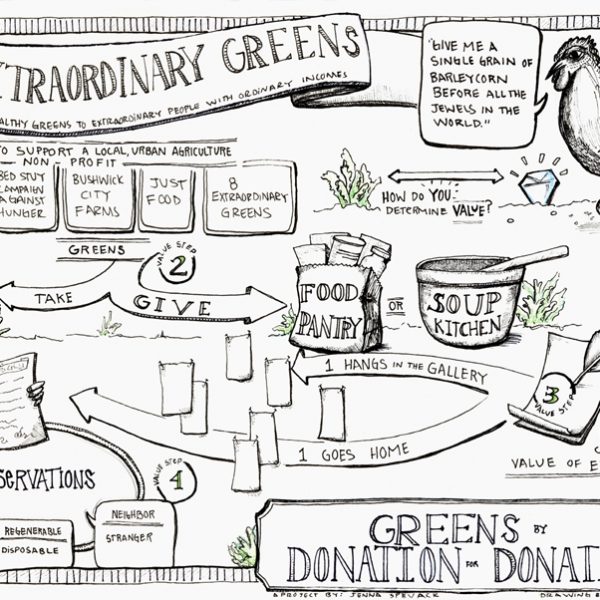 XTRAORDINARY GREENS
ALTHY GREENS TO EXTRAORDINARY PEOPLE WITH ORDINARY INCOMES
"GIVE ME A
SINGLE GRAIN OF
BARLEYCORN
BEFORE ALL THE
JEWELS IN THE
WORLD."
TO SUPPORT A LOCAL, URBAN AGRICULTURE
NON-PROFIT
BED STUY
CAMPAIGN
AGAINST
HUNGER
BUSHWICK
CITY
FARMS
JUST
FOOD
8
EXTRAORDINARY
GREENS
HOW DO YOU
DETERMINE VALUE?
GREENS
VALUE STEP
2
TAKE
GIVE
FOOD
PANTRY
OR
SOUP
KITCHEN
1 HANGS IN THE GALLERY
3
VALUE STEP
1 GOES HOME
VALUE OF E
SERVATIONS
VALUE STEP
1
REGENERABLE
DISPOSABLE
NEIGHBOR
STRANGER
GREENS BY
DONATION FOR DONATI
A PROJECT BY: JENNA SPEVACK
DRAWING B